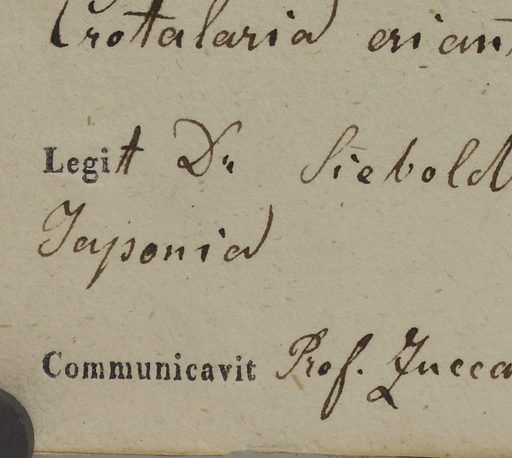 Crotalaria erian
Legit Dr. Siebold
Japonia
Communicavit Prof. Zucca